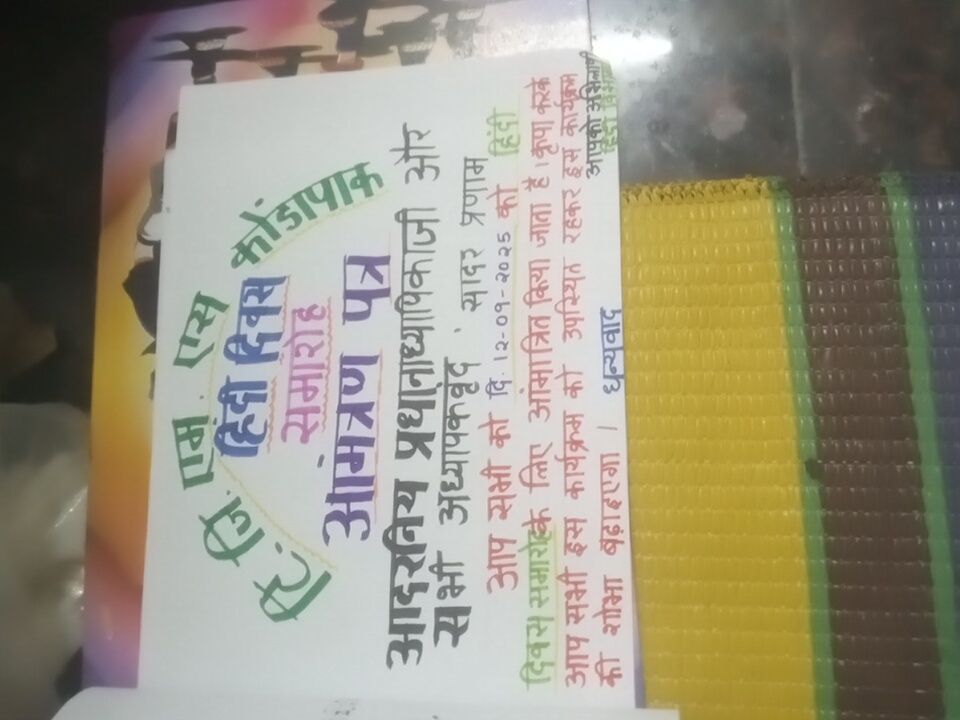 टि. जि. एम. एस कोंडापाक
हिंदी दिवस
समारोह
आमंत्रण पत्र
आदरनिय प्रधानाध्यापिकाजी और
सभी अध्यापकवृंद सादर प्रणाम
आप सभी को दि. 12-09-2025 को हिंदी
दिवस समारोह के लिए आंमात्रित किया जाता है। कृपा करके
आप सभी इस कार्यक्रम को उपस्थित रहकर इस कार्यक्रम
की शोभा बढ़ाइएगा। धन्यवाद
आपको अभिलाषी
हिंदी विभाग